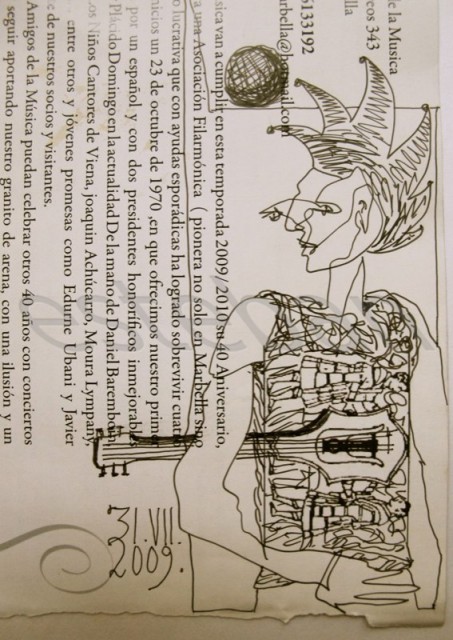 de la Musica
cos 343
lla
5133192
arbella@hotmail.com
sica van a cumplir en esta temporada 2009/2010 su 40 Aniversario,
a una Asociación Filarmónica ( pionera no solo en Marbella sino
o lucrativa que con ayudas esporádicas ha logrado sobrevivir cuatr
nicios un 23 de octubre de 1970 ,en que ofrecimos nuestro prime
por un español y con dos presidentes honoríficos inmejorables
Plácido Domingo en la actualidad De la mano de Daniel Baremboi
Los Niños Cantores de Viena, joaquin Achúcarro, Moura Lympany,
entre otros y jóvenes promesas como Edurne Ubani y Javier
de nuestros socios y visitantes.
Amigos de la Música puedan celebrar otros 40 años con conciertos
seguir aportando nuestro granito de arena, con una ilusión y un
31.VII.
2009.
esteban